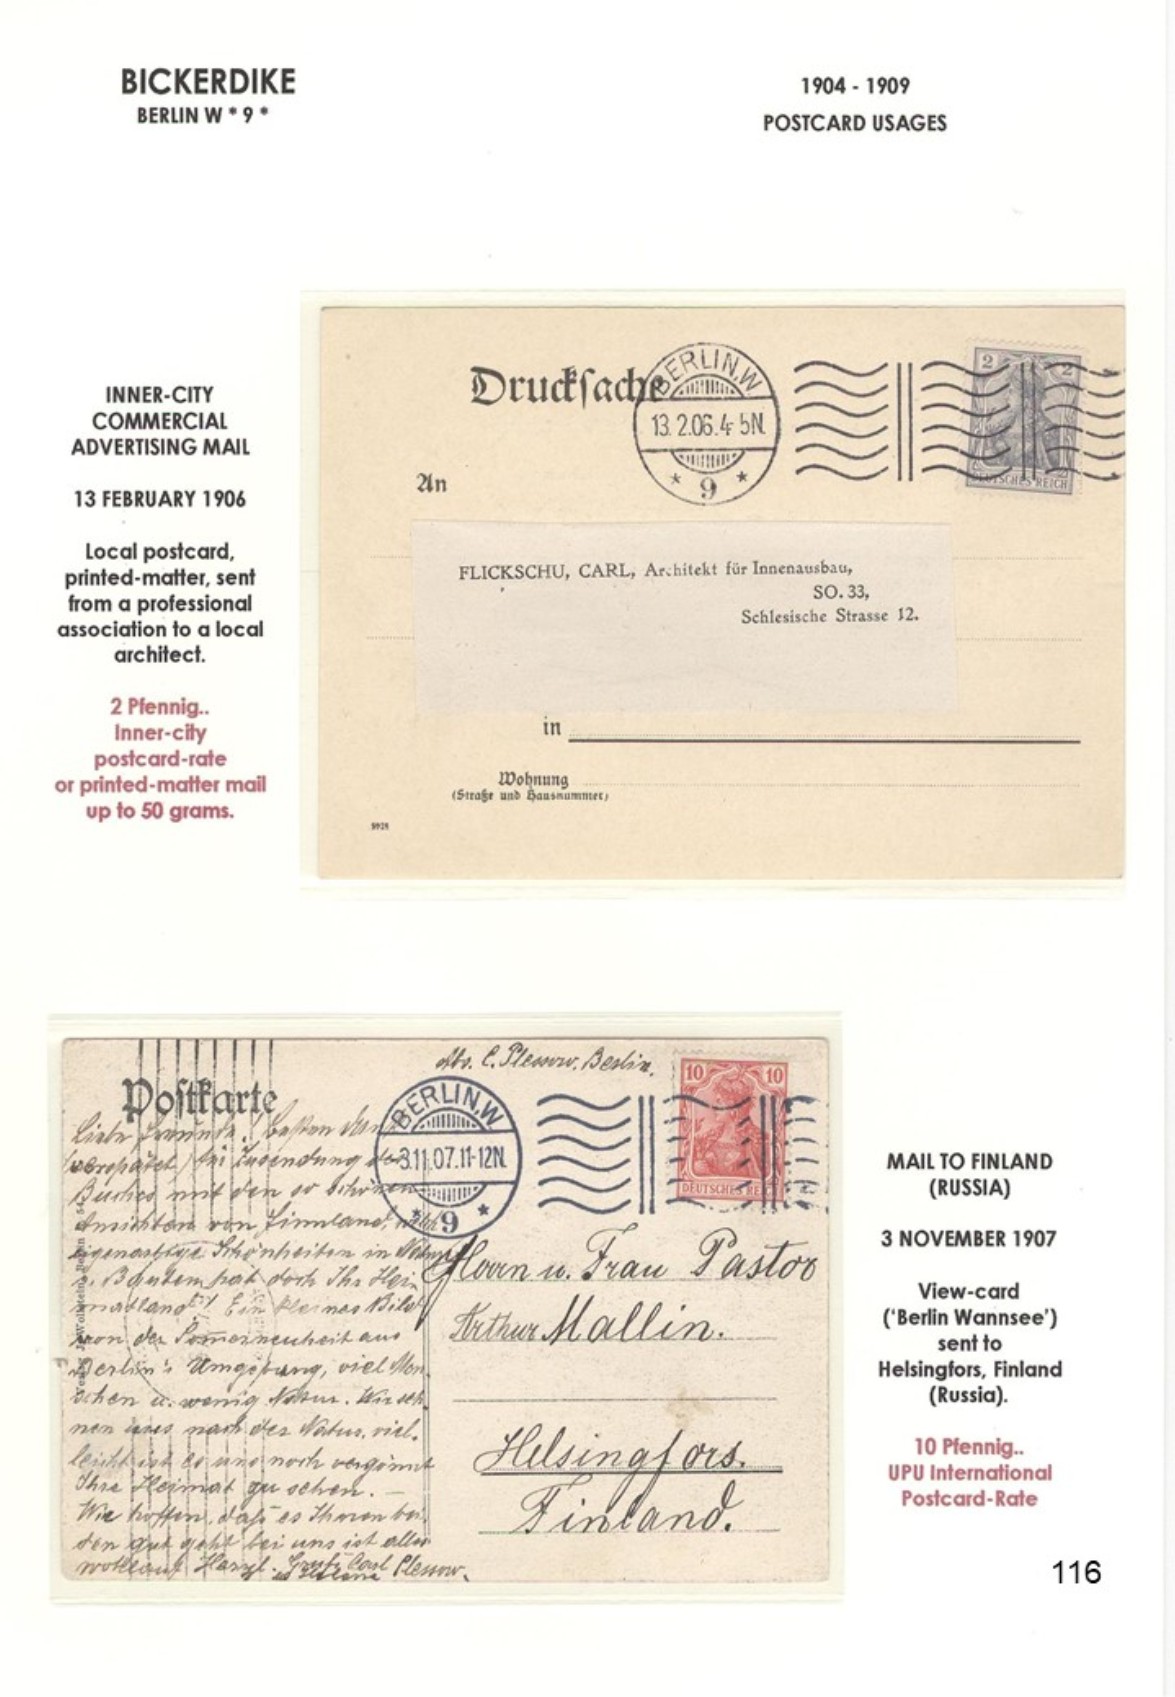 BICKERDIKE
BERLIN W * 9 *
1904 - 1909
POSTCARD USAGES
INNER-CITY
COMMERCIAL
ADVERTISING MAIL
13 FEBRUARY 1906
Local postcard,
printed-matter, sent
from a professional
association to a local
architect.
2 Pfennig..
Inner-city
postcard-rate
or printed-matter mail
up to 50 grams.
Druckſache
BERLIN.W
13.2.06.4-5N.
* 9 *
2 2
DEUTSCHES REICH
An
FLICKSCHU, CARL, Architekt für Innenausbau,
SO. 33,
Schlesische Strasse 12.
in
Wohnung
(Straße und Hausnummer)
Abs. C. Plessow. Berlin.
Poſtkarte
BERLIN.W
3.11.07.11-12N.
* 9 *
10 10
DEUTSCHES REICH
Liebe Freunde! Besten Dank
(verspätet) für Zusendung des
Buches mit den so schönen
Ansichten von Finnland,
eigenartige Schönheiten in
Bauten hat doch Ihr Hei-
matland! Ein kleines Bild
von der aus
Berlin's Umgebung, viel Men-
schen u. wenig Natur. Wir seh-
nen uns nach der Natur, viel-
leicht ist es uns noch vergönnt
Ihre Heimat zu sehen. –
Wir hoffen, daß es Ihnen bei-
den gut geht bei uns ist alles
wohlauf Herzl. Gruß Carl Plessow.
Herrn u. Frau Pastor
Arthur Mallin.
Helsingfors.
Finland.
MAIL TO FINLAND
(RUSSIA)
3 NOVEMBER 1907
View-card
('Berlin Wannsee')
sent to
Helsingfors, Finland
(Russia).
10 Pfennig..
UPU International
Postcard-Rate
116